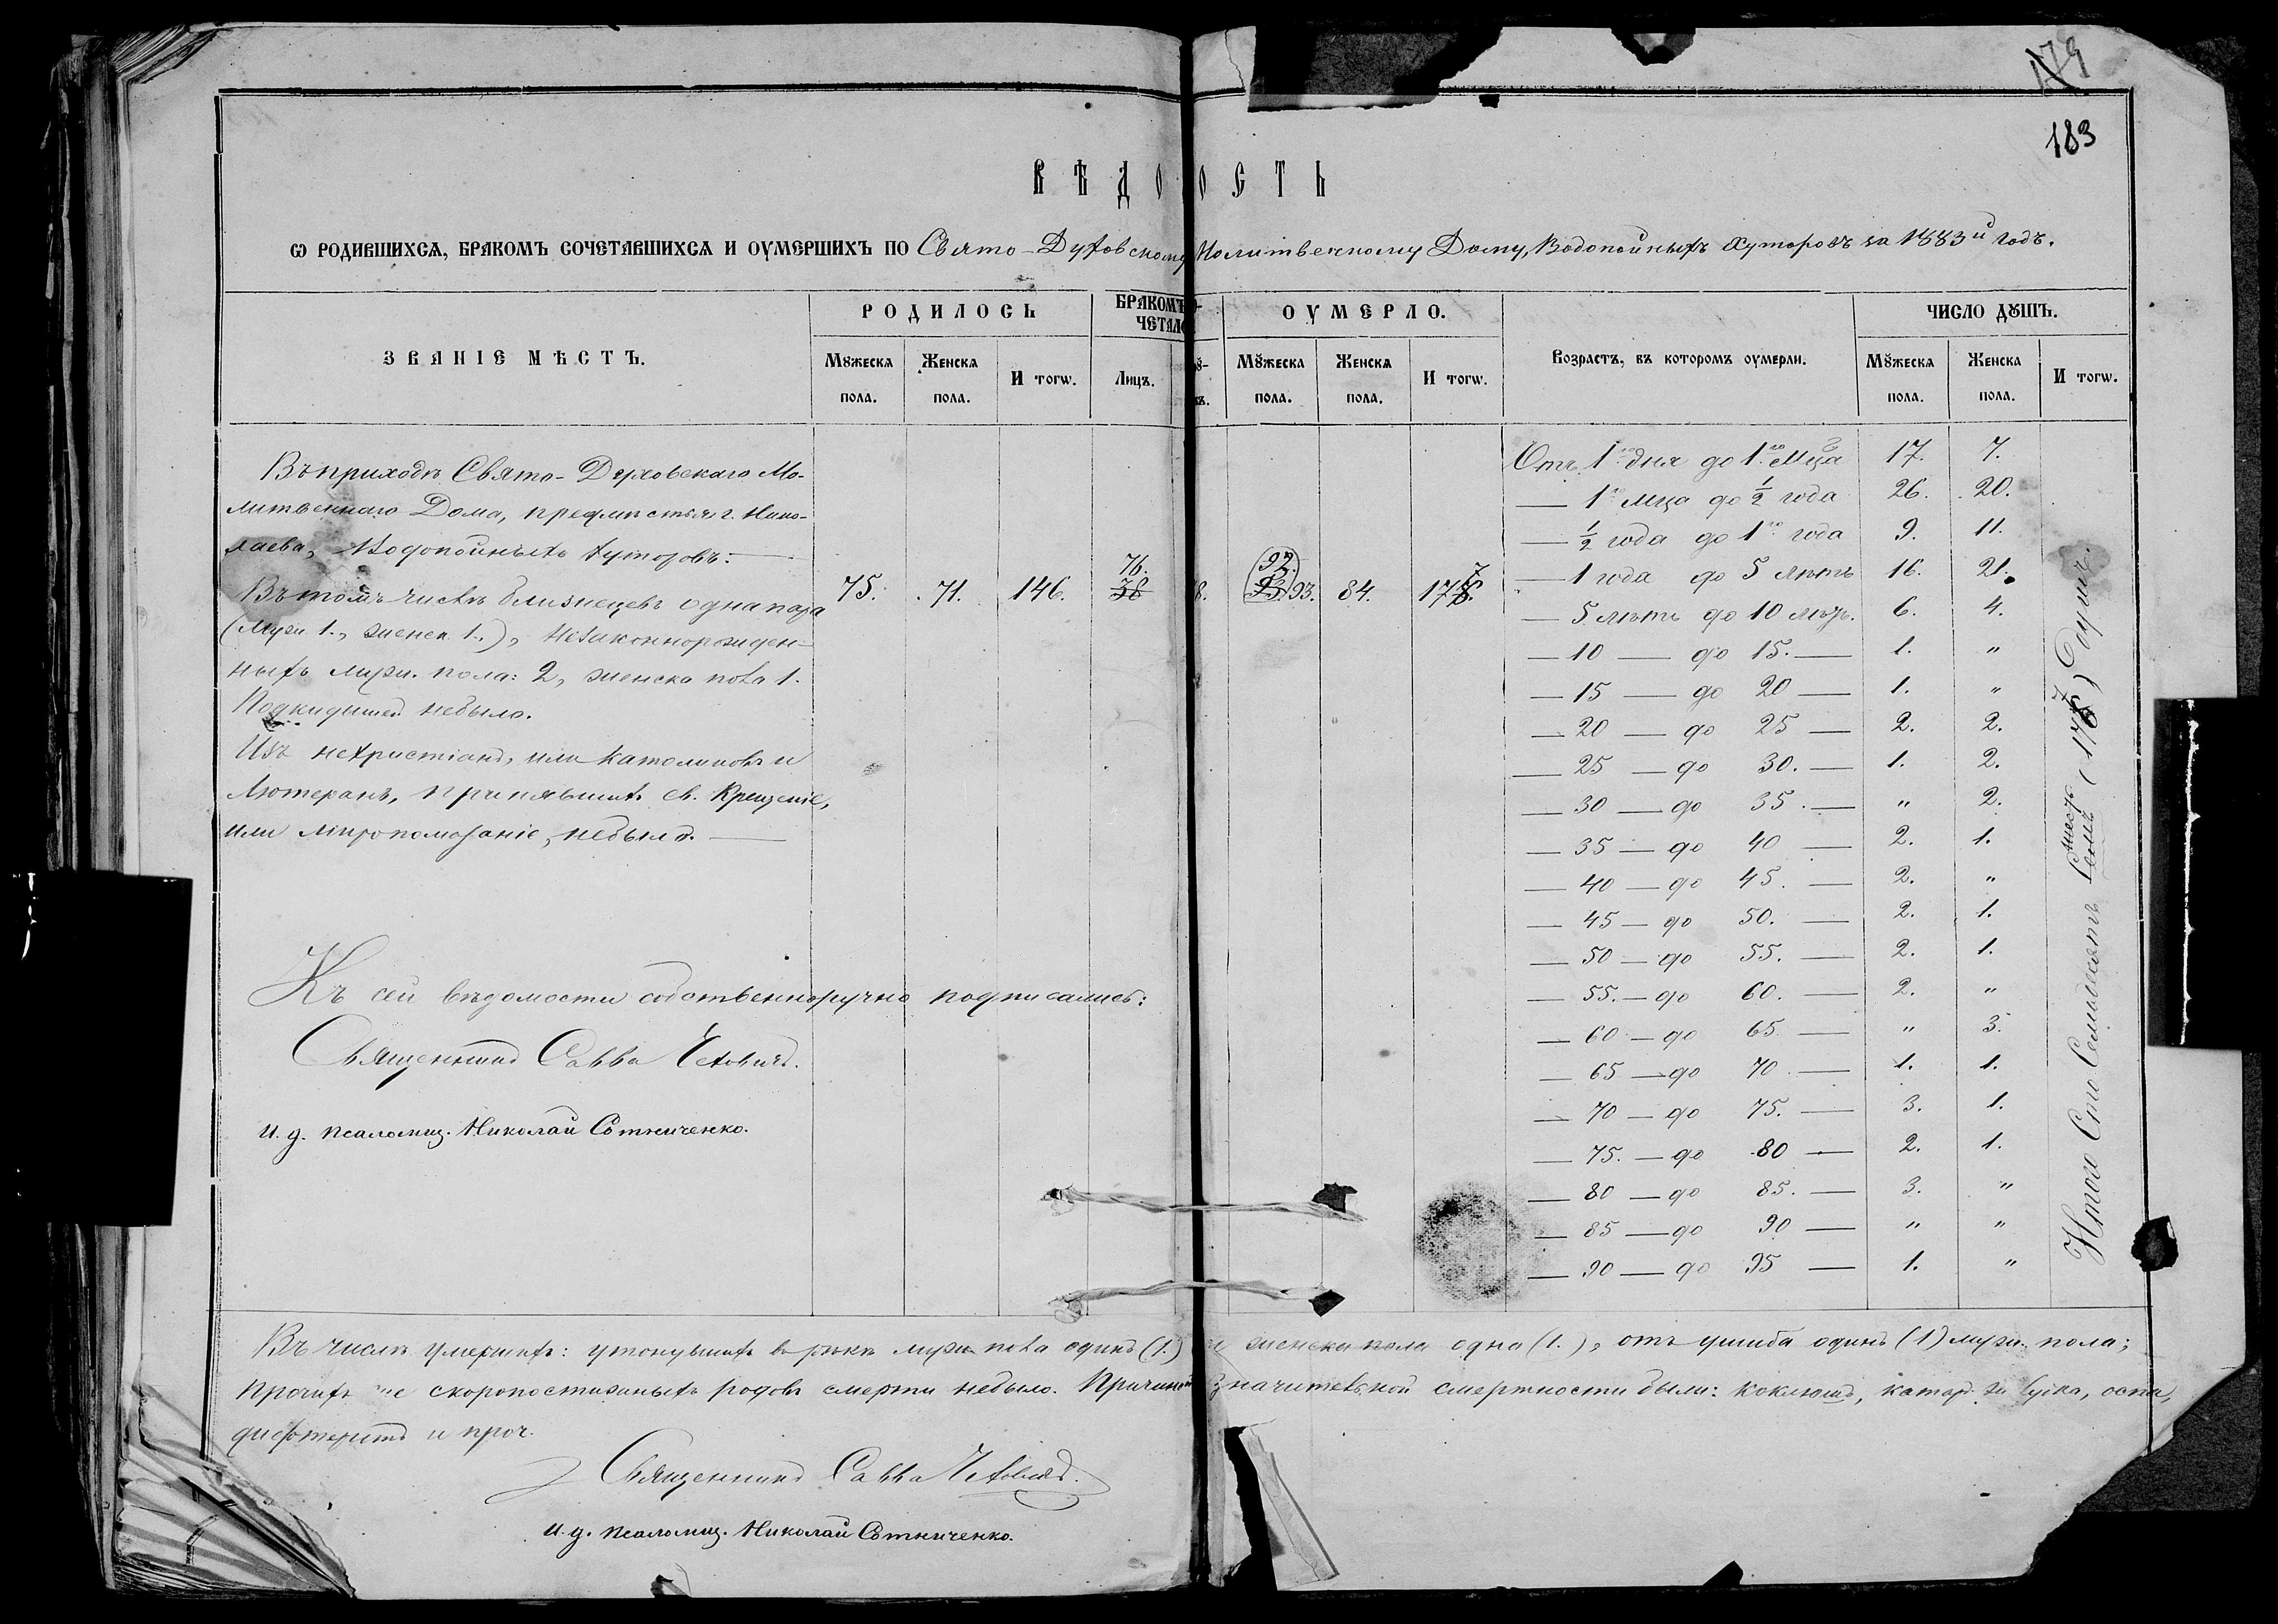 179
183
ВѢДО ОСТЬ
Ѡ РОДИВШИХСѦ, БРАКОМЪ СОЧЕТАВШИХСѦ И ОУМЕРШИХЪ ПО Свято-Духовскому Молитвенному Дому, Водопойныхъ Хуторовъ за 1883й годъ.
ЗВАНІЕ МѢСТЪ.
РОДИЛОСЬ
БРАКОМЪ
ЧЕТАЛО
ОУМЕРЛО.
Возрастъ, въ которомъ оумерли.
ЧИСЛО ДꙊШЪ.
Мꙋжеска пола.
Женска пола.
И тогѡ.
Лицъ.
Мꙋжеска пола.
Женска пола.
И тогѡ.
Мꙋжеска пола.
Женска пола.
И тогѡ.
Въ приходѣ Свято-Духовскаго Мо-
литвеннаго Дома, предмѣстья г. Нико-
лаева, Водопойныхъ хуторовъ:
Въ томъ числѣ близнецовъ одна пара
(муж. 1., женск. 1.), незаконнорожден-
ныхъ муж. пола: 2, женска пола 1.
Подкидышей небыло.
Изъ нехристіанъ, или католиковъ и
Лютеранъ, принявшихъ св. Крещеніе,
или мѵропомазаніе, небыло.
75. 71. 146. 76. 38 8. 92. 93. 84. 177.
Отъ 1го дня до 1го мца 17. 7.
— 1го мца до ½ года 26. 20.
— ½ года до 1го года 9. 11.
— 1 года до 5 лѣтъ 16. 21.
— 5 лѣтъ до 10 лѣтъ. 6. 4.
— 10 — до 15. — 1. "
— 15 — до 20 — 1. "
— 20 — до 25 — 2. 2.
— 25 — до 30. — 1. 2.
— 30 — до 35. — " 2.
— 35 — до 40 — 2. 1.
— 40 — до 45. — 2. "
— 45 — до 50. — 2. 1.
— 50 — до 55. — 2. 1.
— 55. — до 60. — 2. "
— 60 — до 65 — " 3.
— 65 — до 70. — 1. 1.
— 70 — до 75. — 3. 1.
— 75. — до 80 — 2. 1.
— 80 — до 85. — 3. "
— 85 — до 90 — " "
— 90 — до 95 — 1. "
Итого Сто Семьдесятъ Семь шесть (177) душъ.
Къ сей вѣдомости собственноручно подписались:
Священникъ Савва Чехович.
И. д. псаломщ. Николай Сотниченко.
Въ числѣ умершихъ: утонувшихъ въ рѣкѣ муж. пола одинъ (1.) и женска пола одна (1.), отъ ушиба одинъ (1) муж. пола;
прочихъ же скоропостижныхъ родовъ смерти небыло. Причиной значительной смертности были: коклюшъ, катар. оспа,
дифтеритъ и проч.
Священникъ Савва Чехович.
И. д. псаломщ. Николай Сотниченко.